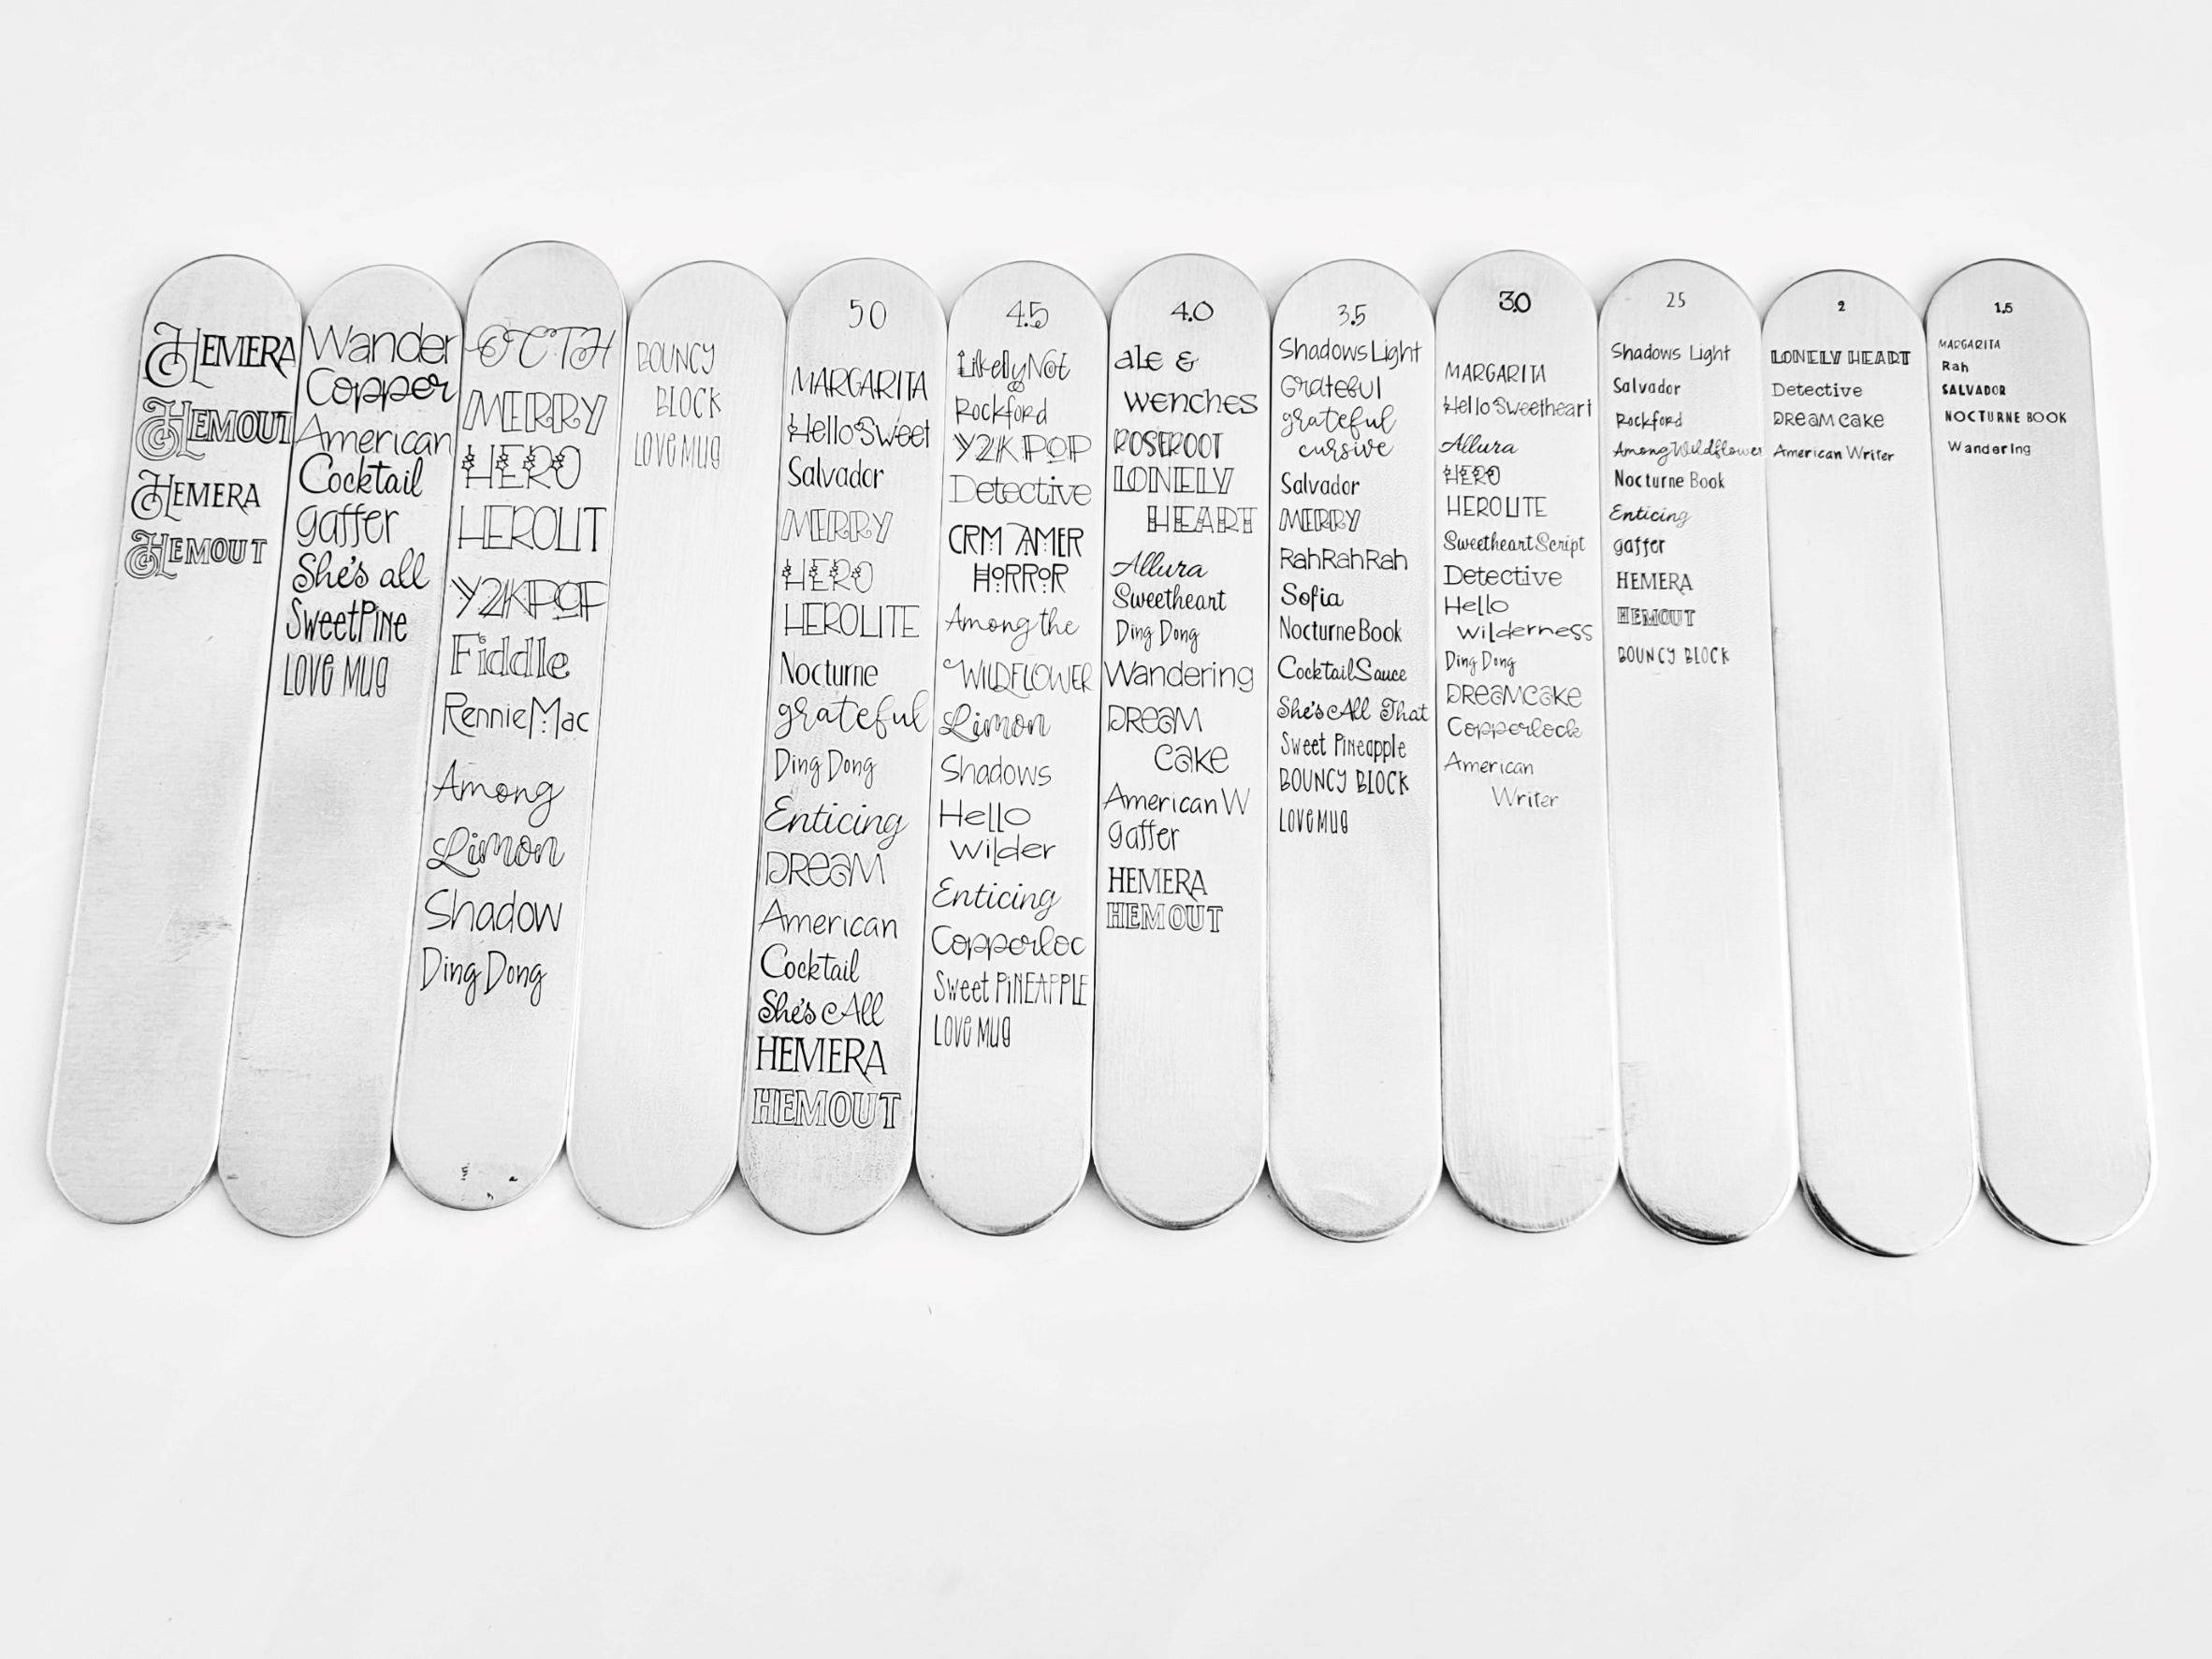 HEMERA
HEMOUT
HEMERA
HEMOUT
Wander
Copper
American
Cocktail
gaffer
She's all
SweetPine
LOVE MUG
OCTH
MERRY
HERO
HEROLIT
Y2KPOP
Fiddle
RennieMac
Among
Limon
Shadow
Ding Dong
BOUNCY
BLOCK
LOVE MUG
50
MARGARITA
Hello Sweet
Salvador
MERRY
HERO
HEROLITE
Nocturne
grateful
Ding Dong
Enticing
DREAM
American
Cocktail
She's All
HEMERA
HEMOUT
4.5
LikelyNot
Rockford
Y2K POP
Detective
CRM AMER
HORROR
Among the
WILDFLOWER
Limon
Shadows
Hello
Wilder
Enticing
Copperloc
Sweet PiNEAPPLE
LOVE MUG
4.0
ale &
wenches
ROSEROOT
LONELY
HEART
Allura
Sweetheart
Ding Dong
Wandering
DREAM
Cake
American W
gaffer
HEMERA
HEMOUT
3.5
Shadows Light
Grateful
grateful
cursive
Salvador
MERRY
RahRahRah
Sofia
Nocturne Book
Cocktail Sauce
She's All That
Sweet Pineapple
BOUNCY BLOCK
LOVE MUG
3.0
MARGARITA
Hello Sweetheart
Allura
HERO
HEROLITE
Sweetheart Script
Detective
Hello
Wilderness
Ding Dong
DREAMCAKE
Copperlock
American
Writer
25
Shadows Light
Salvador
Rockford
Among Wildflower
Nocturne Book
Enticing
gaffer
HEMERA
HEMOUT
BOUNCY BLOCK
2
LONELY HEART
Detective
DREAM CAKE
American Writer
1.5
MARGARITA
Rah
SALVADOR
NOCTURNE BOOK
Wandering